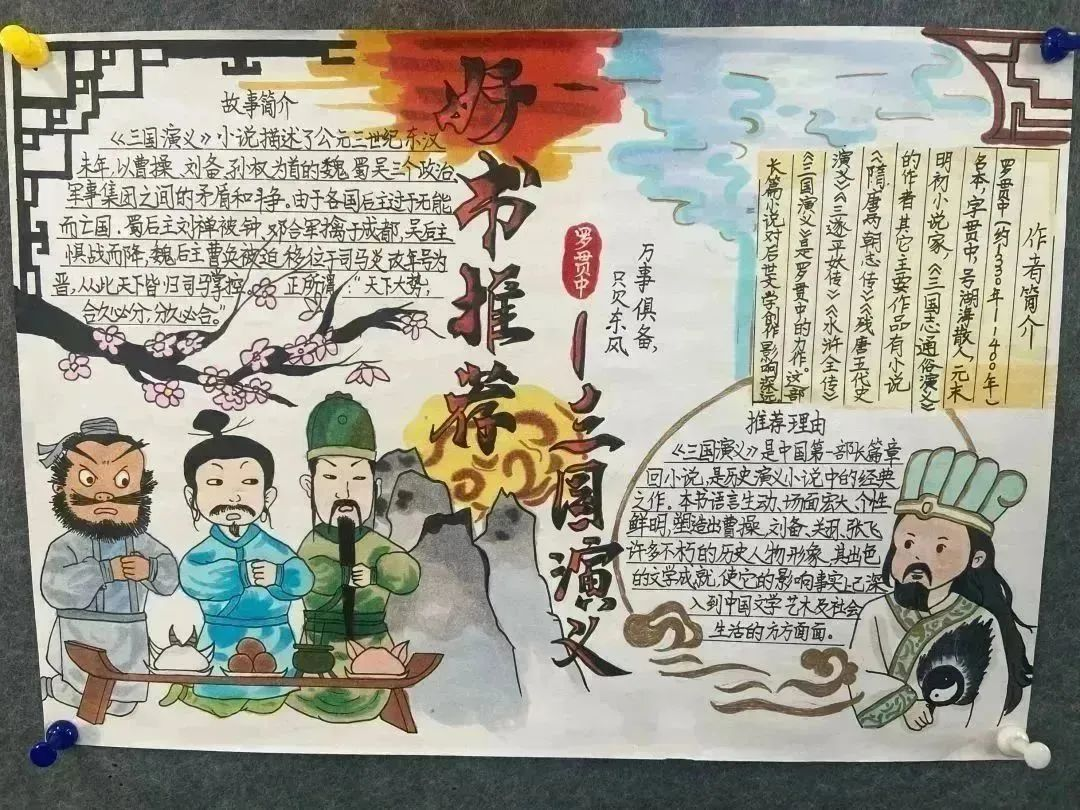 好书推荐
罗贯中
一三国演义
万事俱备,
只欠东风
故事简介
《三国演义》小说描述了公元三世纪东汉
末年,以曹操、刘备、孙权为首的魏、蜀、吴三个政治
军事集团之间的矛盾和斗争。由于各国后主过于无能
而亡国。蜀后主刘禅被钟、邓合军擒于成都,吴后主
惧战而降,魏后主曹奂被迫移位于司马炎改年号为
晋,从此天下皆归司马掌控。正所谓:“天下大势,
合久必分,分久必合。”
作者简介
罗贯中(约1330年-1400年)
名本,字贯中,号湖海散人,元末
明初小说家,《三国志通俗演义》
的作者其它主要作品有小说
《隋唐两朝志传》《残唐五代史
演义》《三遂平妖传》《水浒全传》
《三国演义》是罗贯中的力作。这部
长篇小说对后世文学创作影响深远
推荐理由
《三国演义》是中国第一部长篇章
回小说,是历史演义小说中的经典
之作。本书语言生动、场面宏大、个性
鲜明,塑造出曹操、刘备、关羽、张飞
许多不朽的历史人物形象,其出色
的文学成就,使它的影响事实上已深
入到中国文学艺术及社会
生活的方方面面。